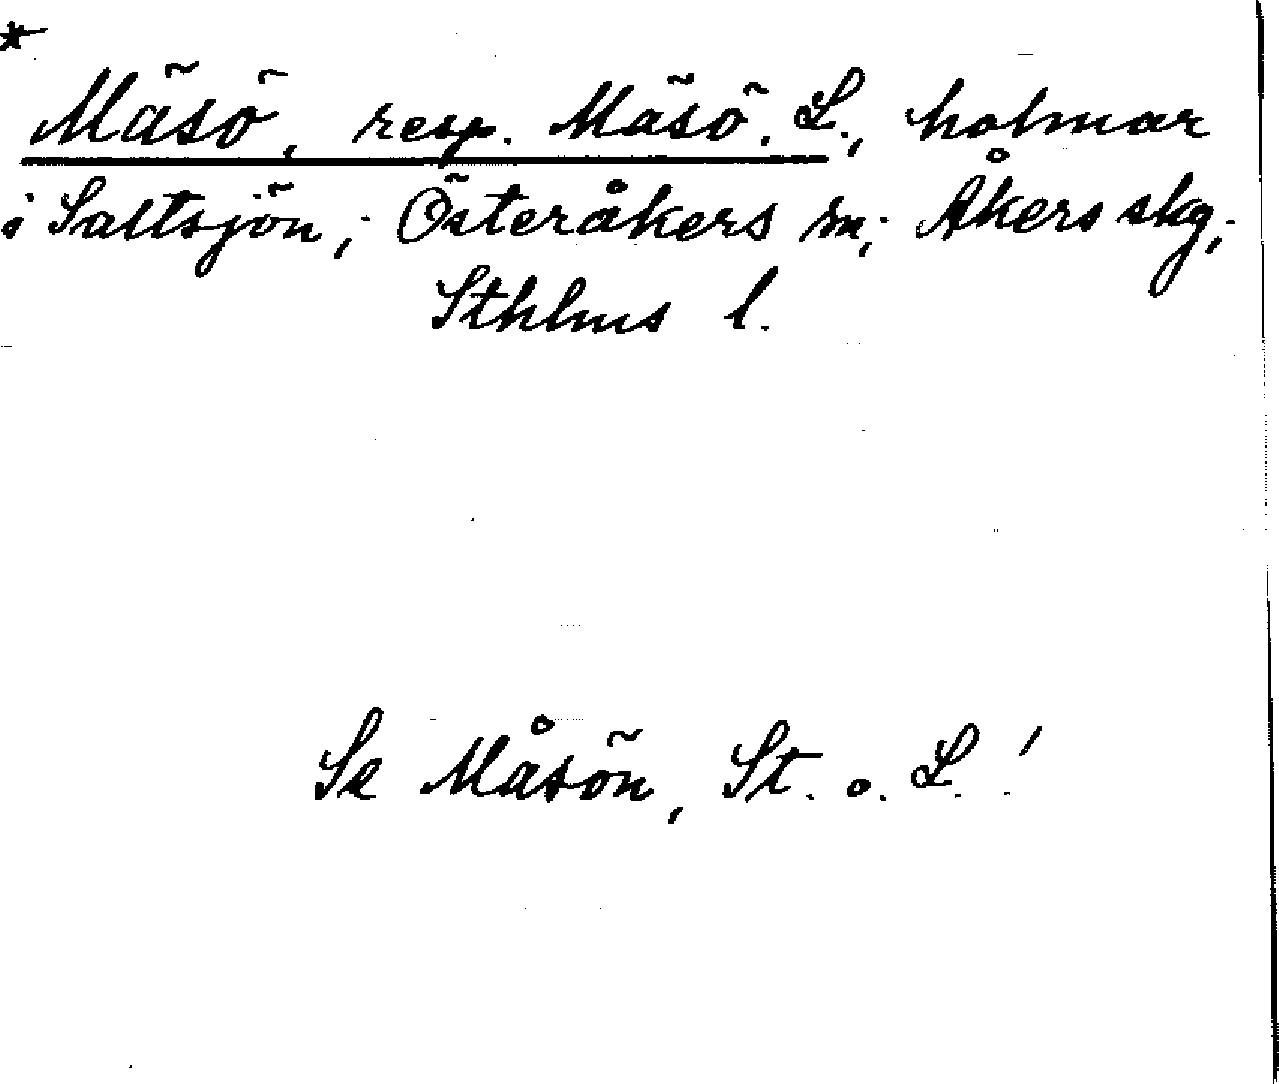 *
Mäsö, resp. Mäsö, L., holmar
i Saltsjön; Österåkers sn; Åkers skg;
Sthlms l.
Se Måsön, St. o. L.!